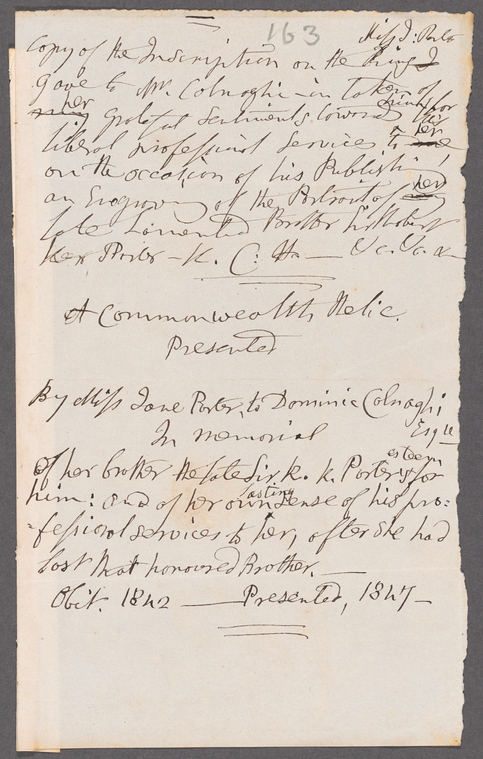 163
Miss J. Porter
Copy of the Inscription on the Ring I
gave to Mr. Colnaghi - in token of
my her grateful sentiments toward him for his
liberal professional services to me her
on the occasion of his Publishing
an Engraving of the Portrait of my her
late Lamented Brother Sir Robert
Ker Porter - K. C. H - &c. &c. &c
A Commonwealth Relic.
Presented
By Miss Jane Porter, to Dominic Colnaghi
Esqre
In memorial
of her brother the late Sir R. K. Porter's esteem for
him: and of her own lasting sense of his pro-
-fessional services to her, after she had
lost that honoured Brother. -
Obit. 1842 - Presented, 1847 -